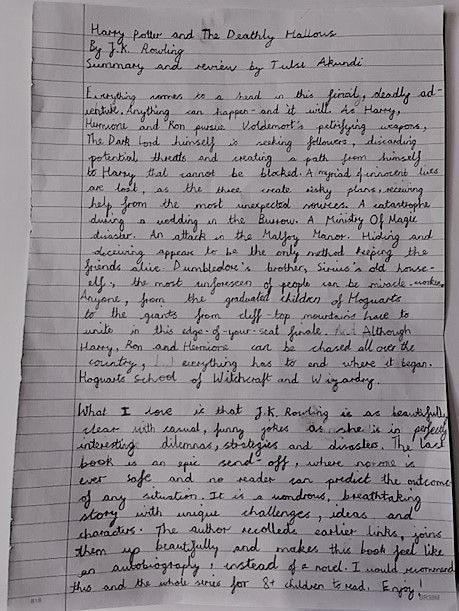 Harry Potter and The Deathly Hallows
By J.K. Rowling
Summary and review by Tulsi Akundi
Everything comes to a head in this final, deadly ad-
venture. Anything can happen - and it will. As Harry,
Hermione and Ron pursue Voldemort's petrifying weapons,
The Dark Lord himself is seeking followers, discarding
potential threats and creating a path from himself
to Harry that cannot be blocked. A myriad of innocent lives
are lost, as the three create risky plans, receiving
help from the most unexpected sources. A catastrophe
during a wedding in the Burrow. A Ministry Of Magic
disaster. An attack in the Malfoy Manor. Hiding and
deceiving appear to be the only method keeping the
friends alive. Dumbledore's brother, Sirius's old house-
elf, the most unforeseen of people can be miracle-workers.
Anyone, from the graduated children of Hogwarts
to the giants from cliff-top mountains have to
unite in this edge-of-your-seat finale. Although
Harry, Ron and Hermione can be chased all over the
country, everything has to end where it began.
Hogwarts School of Witchcraft and Wizardry.
What I love is that J.K. Rowling is as beautifully
clear with casual, funny jokes as she is in perfectly
interesting dilemnas, strategies and disasters. The last
book is an epic send-off, where no-one is
ever safe and no reader can predict the outcome
of any situation. It is a wondrous, breathtaking
story with unique challenges, ideas and
characters. The author recollects earlier links, joins
them up beautifully and makes this book feel like
an autobiography, instead of a novel. I would recommend
this and the whole series for 8+ children to read. Enjoy!